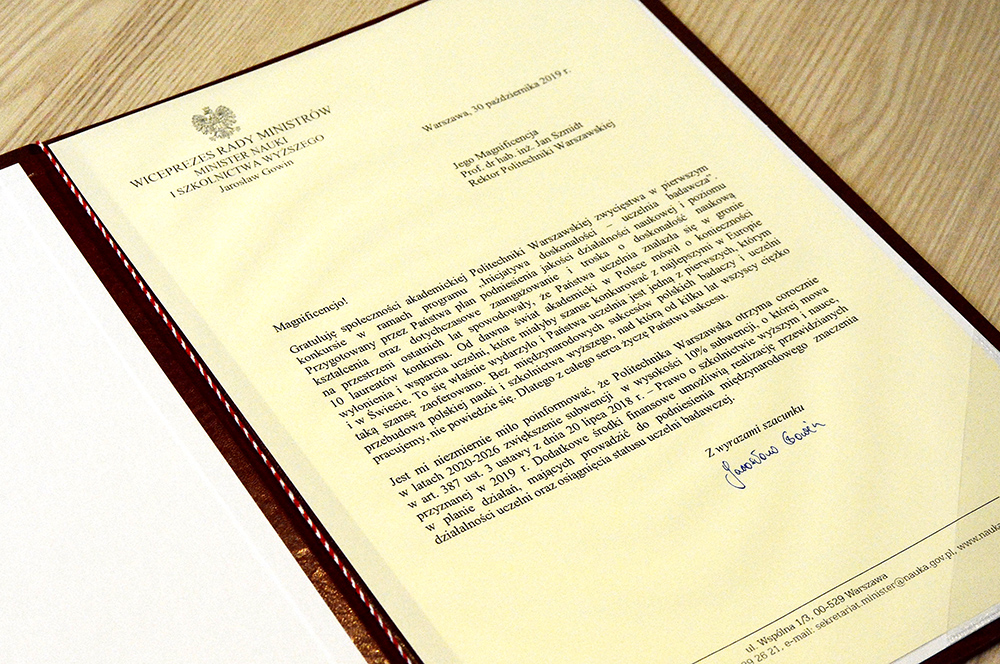 WICEPREZES RADY MINISTRÓW
MINISTER NAUKI
I SZKOLNICTWA WYŻSZEGO
Jarosław Gowin
Warszawa, 30 października 2019 r.
Jego Magnificencja
Prof. dr hab. inż. Jan Szmidt
Rektor Politechniki Warszawskiej
Magnificencjo!
Gratuluję społeczności akademickiej Politechniki Warszawskiej zwycięstwa w pierwszym
konkursie w ramach programu „Inicjatywa doskonałości – uczelnia badawcza”.
Przygotowany przez Państwa plan podniesienia jakości działalności naukowej i poziomu
kształcenia oraz dotychczasowe zaangażowanie i troska o doskonałość naukową
na przestrzeni ostatnich lat spowodowały, że Państwa uczelnia znalazła się w gronie
10 laureatów konkursu. Od dawna świat akademicki w Polsce mówił o konieczności
wyłonienia i wsparcia uczelni, które miałyby szanse konkurować z najlepszymi w Europie
i w Świecie. To się właśnie wydarzyło i Państwa uczelnia jest jedną z pierwszych, którym
taką szansę zaoferowano. Bez międzynarodowych sukcesów polskich badaczy i uczelni
przebudowa polskiej nauki i szkolnictwa wyższego, nad którą od kilku lat wszyscy ciężko
pracujemy, nie powiedzie się. Dlatego z całego serca życzę Państwu sukcesu.
Jest mi niezmiernie miło poinformować, że Politechnika Warszawska otrzyma corocznie
w latach 2020-2026 zwiększenie subwencji w wysokości 10% subwencji, o której mowa
w art. 387 ust. 3 ustawy z dnia 20 lipca 2018 r. – Prawo o szkolnictwie wyższym i nauce,
przyznanej w 2019 r. Dodatkowe środki finansowe umożliwią realizację przewidzianych
w planie działań, mających prowadzić do podniesienia międzynarodowego znaczenia
działalności uczelni oraz osiągnięcia statusu uczelni badawczej.
Z wyrazami szacunku
Jarosław Gowin
ul. Wspólna 1/3, 00-529 Warszawa
29 26 21, e-mail: sekretariat.minister@nauka.gov.pl, www.nauka